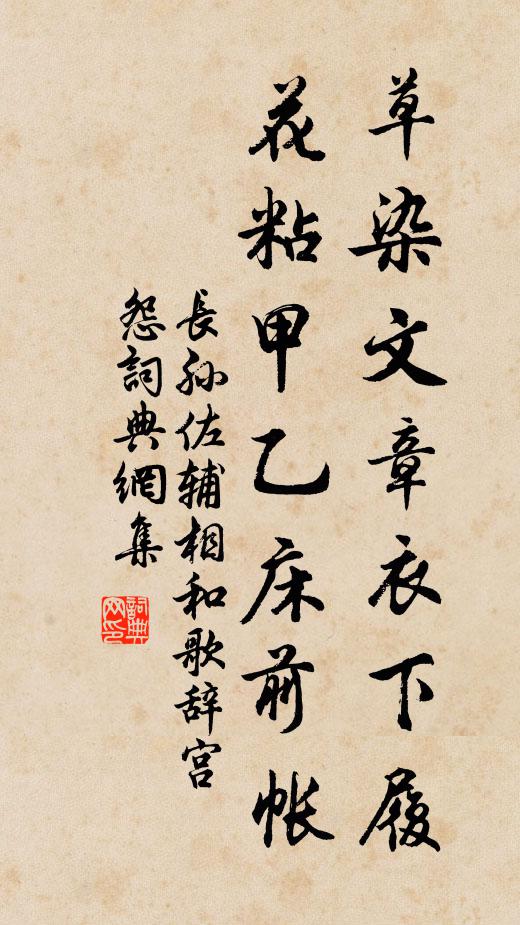 草染文章衣下履
花粘甲乙床前帐
長孙佐辅相和歌辞宫
怨詞典網集
詞典网印